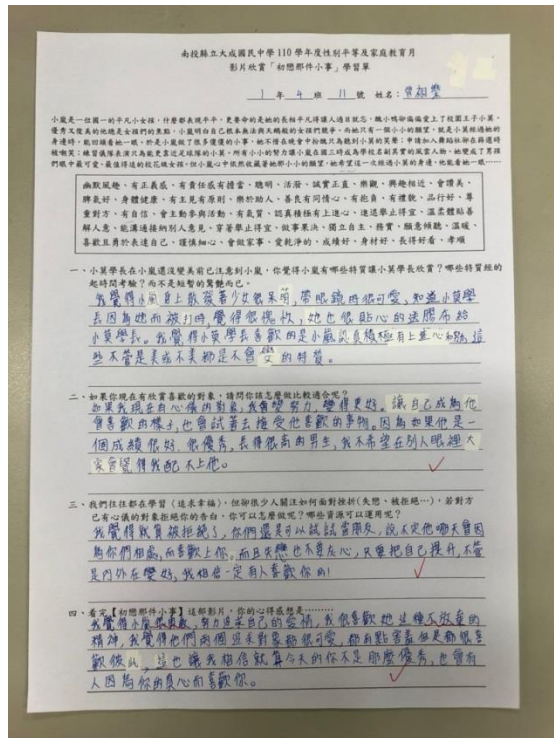 南投縣立大成國民中學 110 學年度性別平等及家庭教育月
影片欣賞「初戀那件小事」學習單
1 年 4 班 11 號 姓名：
小嵐是一位國一的平凡小女孩，什麼都表現平平，更要命的是她的長相平凡得讓人過目就忘，醜小鴨卻偏偏愛上了校園王子小莫，
優秀又俊美的他總是女孩們的焦點，小嵐明白自己根本無法與天鵝般的女孩們競爭，而她只有一個小小的願望，就是小莫經過她的
身邊時，能回頭看她一眼，於是小嵐做了很多傻傻的小事，她不惜在晚會中扮醜只為聽到小莫的笑聲；申請加入舞蹈社卻在篩選時
被嘲笑；練習儀隊表演只為能更靠近足球隊的小莫，所有小小的努力讓小嵐在國三時成為學校名副其實的風雲人物，她變成了男孩
們眼中最可愛、最值得追的校花級女孩，但小嵐心中依然收藏著她那小小的願望，她希望這一次經過小莫的身邊，他能看她一眼……
幽默風趣、有正義感、有責任感有擔當、聰明、活潑、誠實正直、樂觀、興趣相近、會讚美、
脾氣好、身體健康、有主見有原則、樂於助人、善良有同情心、有抱負、有禮貌、品行好、尊
重對方、有自信、會主動參與活動、有氣質、認真積極有上進心、進退舉止得宜、溫柔體貼善
解人意、能溝通接納別人意見、穿著舉止得宜、做事果決、獨立自主、務實、願意傾聽、溫暖、
喜歡且勇於表達自己、謹慎細心、會做家事、愛乾淨的、成績好、身材好、長得好看、孝順
一、小莫學長在小嵐還沒變美前已注意到小嵐，你覺得小嵐有哪些特質讓小莫學長欣賞？哪些特質經的
起時間考驗？而不是短暫的驚艷而已。
我覺得小嵐身上散發著少女很呆萌，帶眼鏡時很可愛，知道小莫學
長因為她而被打時，覺得很愧疚，她也很貼心的送膠布給
小莫學長。我覺得小莫學長喜歡的是小嵐認真積極有上進心和的，這
些不管是美或不美都是不會變的特質。
二、如果你現在有欣賞喜歡的對象，請問你該怎麼做比較適合呢？
如果我現在有心儀的對象，我會變努力，變得更好。讓自己成為他
會喜歡的樣子，也會試著去接受他喜歡的事物。因為如果他是一
個成績很好、很優秀，長得很高的男生，我不希望在別人眼裡大
家會覺得我配不上他。
三、我們往往都在學習（追求幸福），但卻很少人關注如何面對挫折(失戀、被拒絕…)，若對方
已有心儀的對象拒絕你的告白，你可以怎麼做呢？哪些資源可以運用呢？
我覺得就算被拒絕了，你們還是可以試試當朋友，說不定他哪天會因
為你們相處，而喜歡上你。而且失戀也不要灰心，只要把自己提升，不管
是內外在變好，我相信一定有人喜歡你的!
四、看完【初戀那件小事】這部影片，你的心得感想是………
我覺得小嵐很勇敢，努力追求自己的愛情，我很喜歡她這種不放棄的
精神，我覺得他們兩個追求對象都很可愛，都有點害羞但是都很喜
歡彼此，這也讓我相信就算今天的你不是那麼優秀，也會有
人因為你的真心而喜歡你。